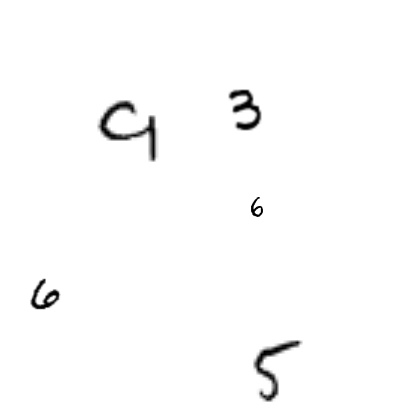 9 3
6
6
5